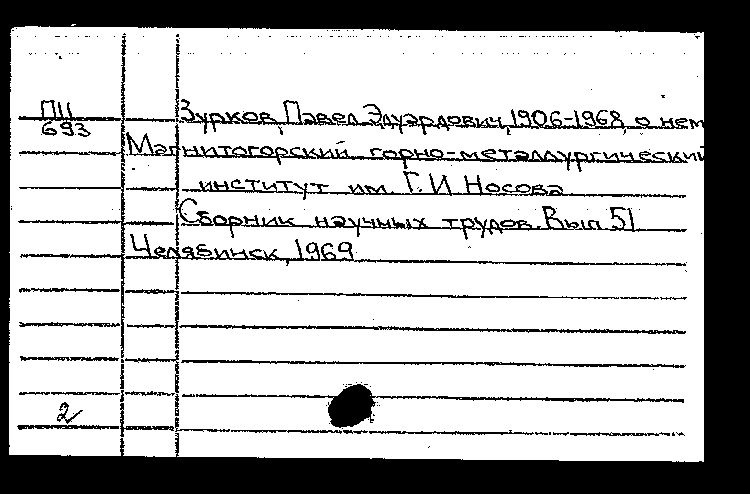 П11
693
Зурков, Павел Эдуардович, 1906-1968, о нем
Магнитогорский горно-металлургический
институт им. Г.И Носова
Сборник научных трудов. Вып 51
Челябинск, 1969
2